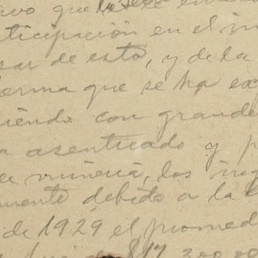 que
ticipación en el m
sar de esto, y de la
forma que se ha ex
iendo con grande
a asentuado y p
minería, los ing
mente debido a la
de 1929 el promed